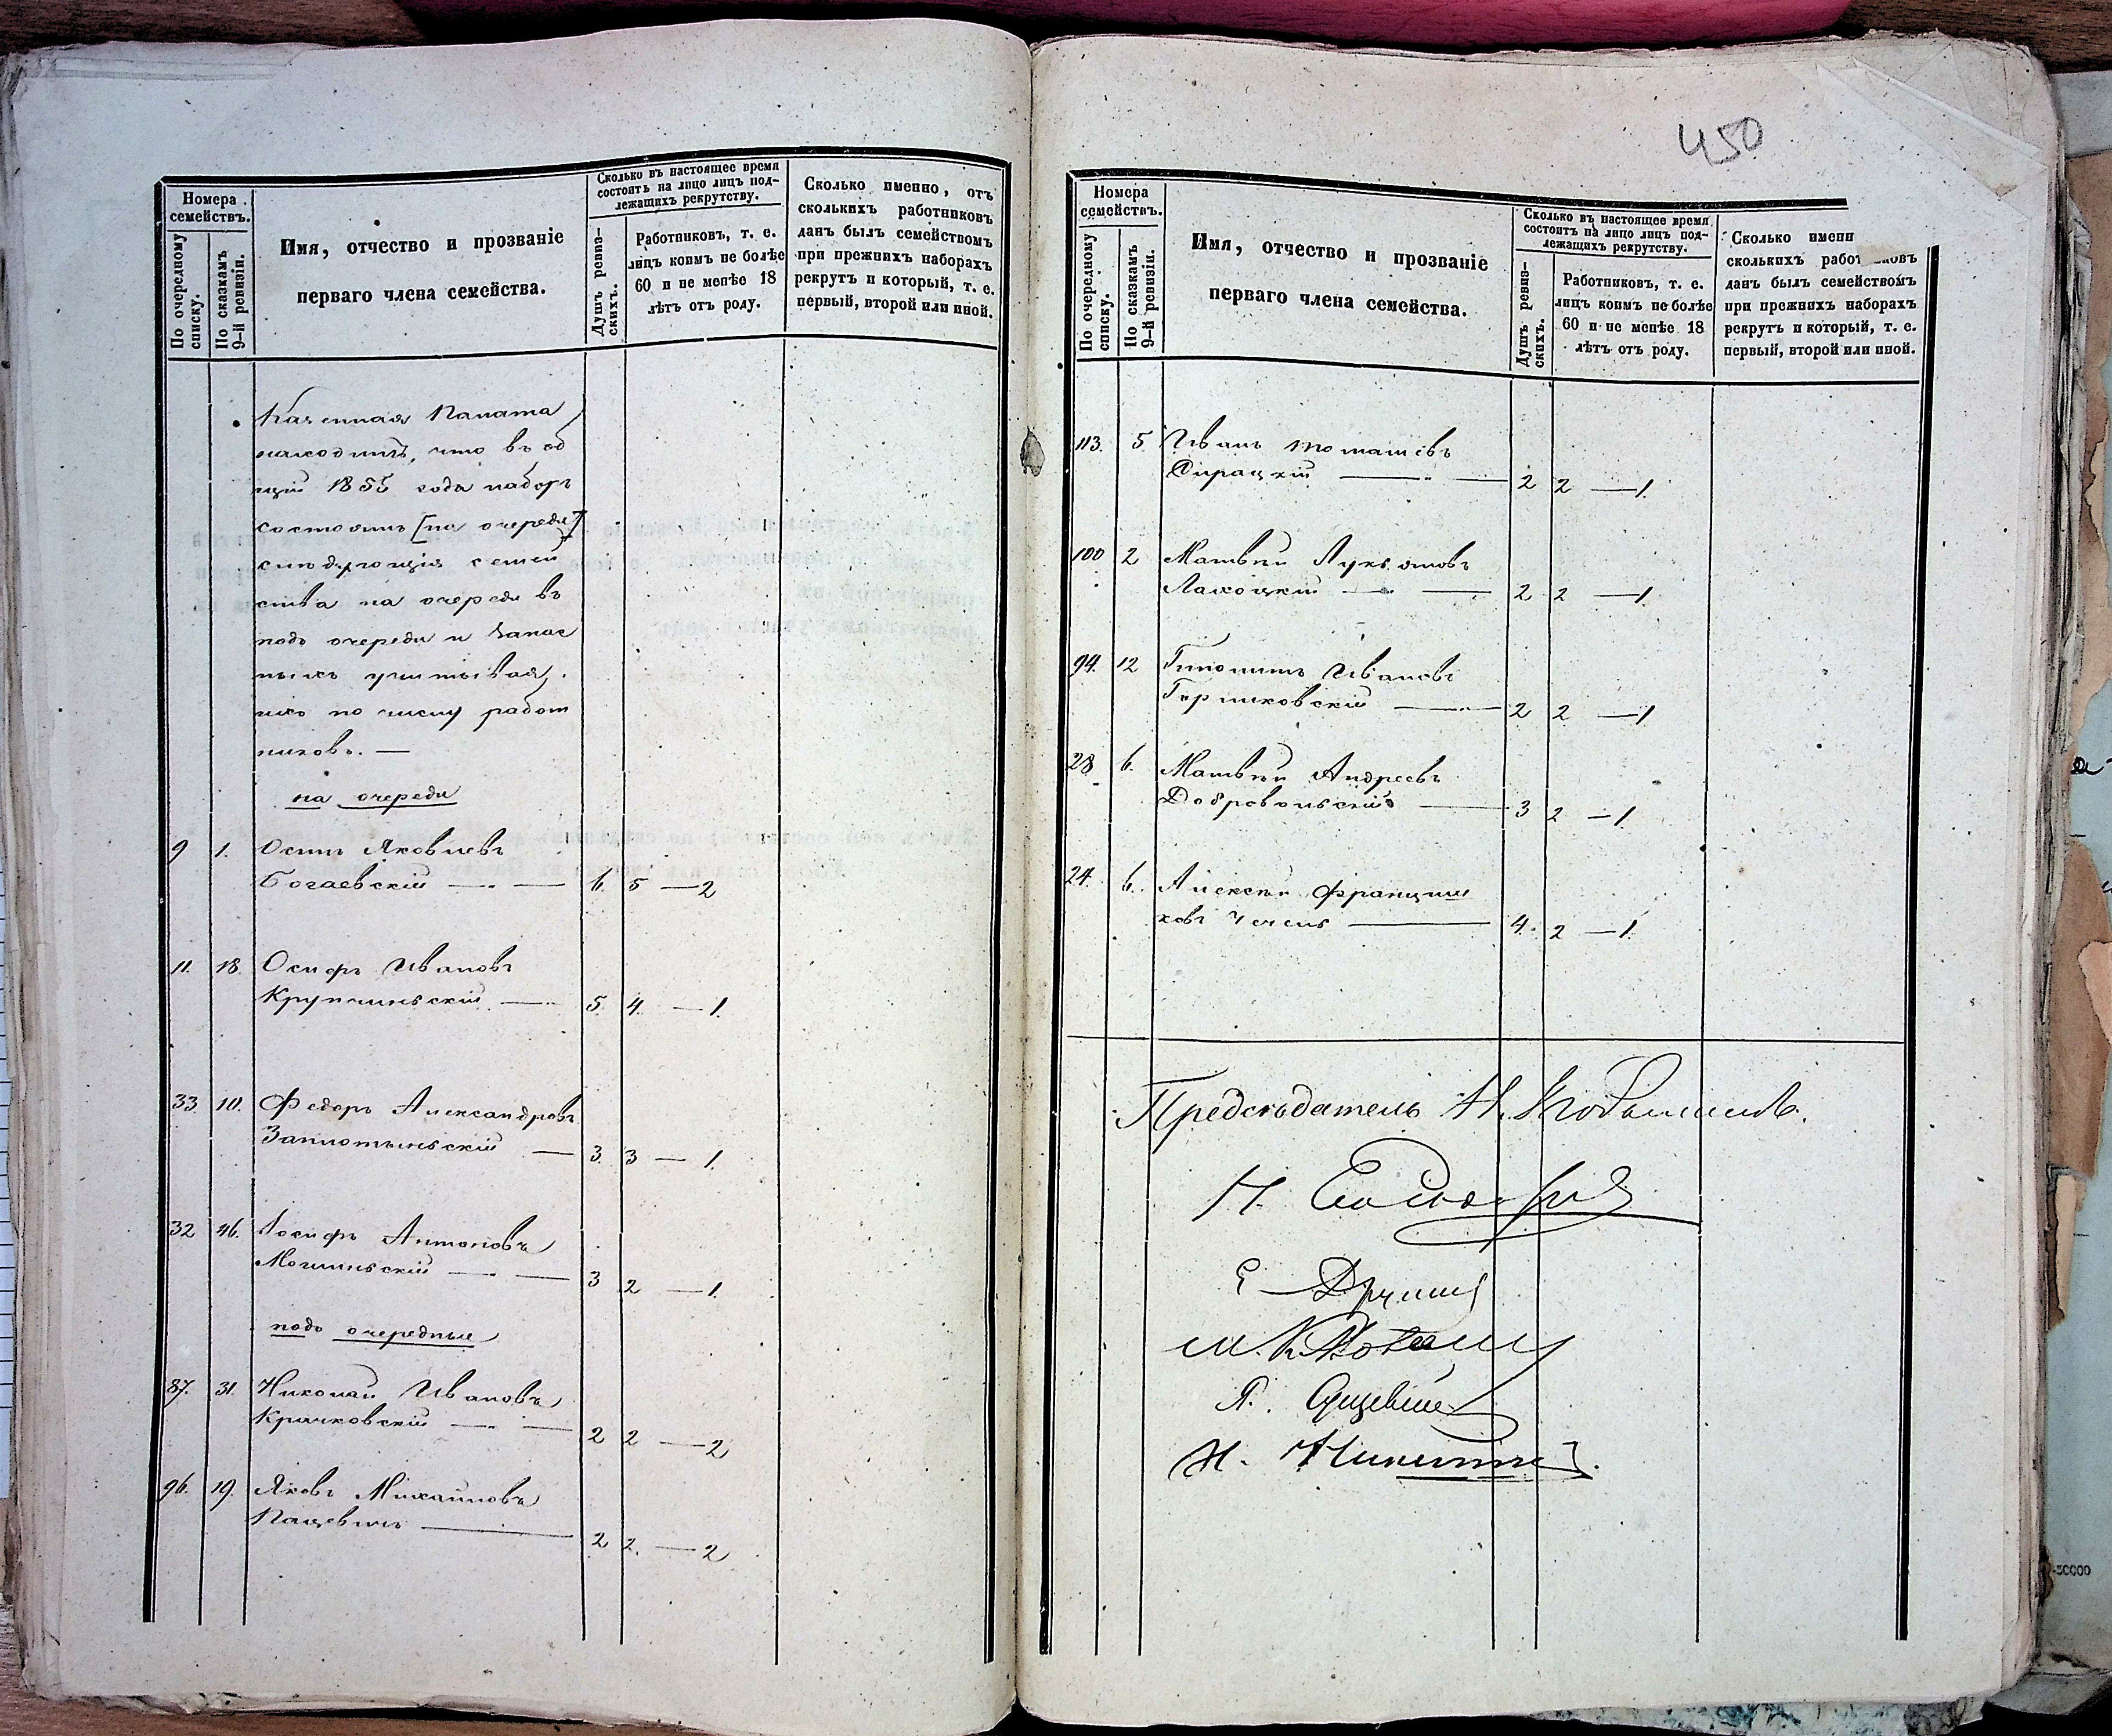 Номера семействъ.
По очередному списку.
По сказкамъ 9-й ревизіи.
Имя, отчество и прозваніе
перваго члена семейства.
Сколько въ настоящее время
состоитъ на лицо лицъ под-
лежащихъ рекрутству.
Душъ ревиз-
скихъ.
Работниковъ, т. е.
лицъ коимъ не болѣе
60 и не менѣе 18
лѣтъ отъ роду.
Сколько именно, отъ
сколькихъ работниковъ
данъ былъ семействомъ
при прежнихъ наборахъ
рекрутъ и который, т. е.
первый, второй или иной.
Казенная Палата
находитъ, что въ об
щій 1855 года наборъ
состоятъ [на очереди]
слѣдующія семей
ства на очереди въ
подъ очереди и запас
ныхъ учитывая,
ихъ по числу работ
никовъ. —
на очереди
9 1. Осипъ Яковлевъ
Богаевскій — 6. 5 — 2
11. 18. Осифъ Ивановъ
Крупчинскій — 5. 4. — 1.
33. 10. Федоръ Александровъ
Заплотынскій — 3. 3 — 1.
32 46. Іосифъ Антоновъ
Могильскій — 3 2 — 1.
подъ очередные
87. 31. Николай Ивановъ
Крачковскій — 2 2 — 2
96. 19. Яковъ Михайловъ
Пацевичъ — 2 2. — 2
450
Номера
семействъ.
По очередному
списку.
По сказкамъ
9-й ревизіи.
Имя, отчество и прозваніе
перваго члена семейства.
Сколько въ настоящее время
состоитъ на лицо лицъ под-
лежащихъ рекрутству.
Душъ ревиз-
скихъ.
Работниковъ, т. е.
лицъ коимъ не болѣе
60 и не менѣе 18
лѣтъ отъ роду.
Сколько имени
сколькихъ работ ковъ
данъ былъ семействомъ
при прежнихъ наборахъ
рекрутъ и который, т. е.
первый, второй или иной.
113. 5. Иванъ Томашевъ
Сирацкій — 2 2 — 1.
100 2 Матвѣй Лукьяновъ
Лахоцкій — 2 2 — 1.
94. 12 Ивановъ
2 2 — 1
28 6. Матвѣй Андреевъ
Добровольскій — 3 2 — 1.
24. 6. Алексѣй Францишковъ
4. 2 — 1.
Предсѣдатель Н.
Н.
Е
М.
Я.
Н. Никитин
50000